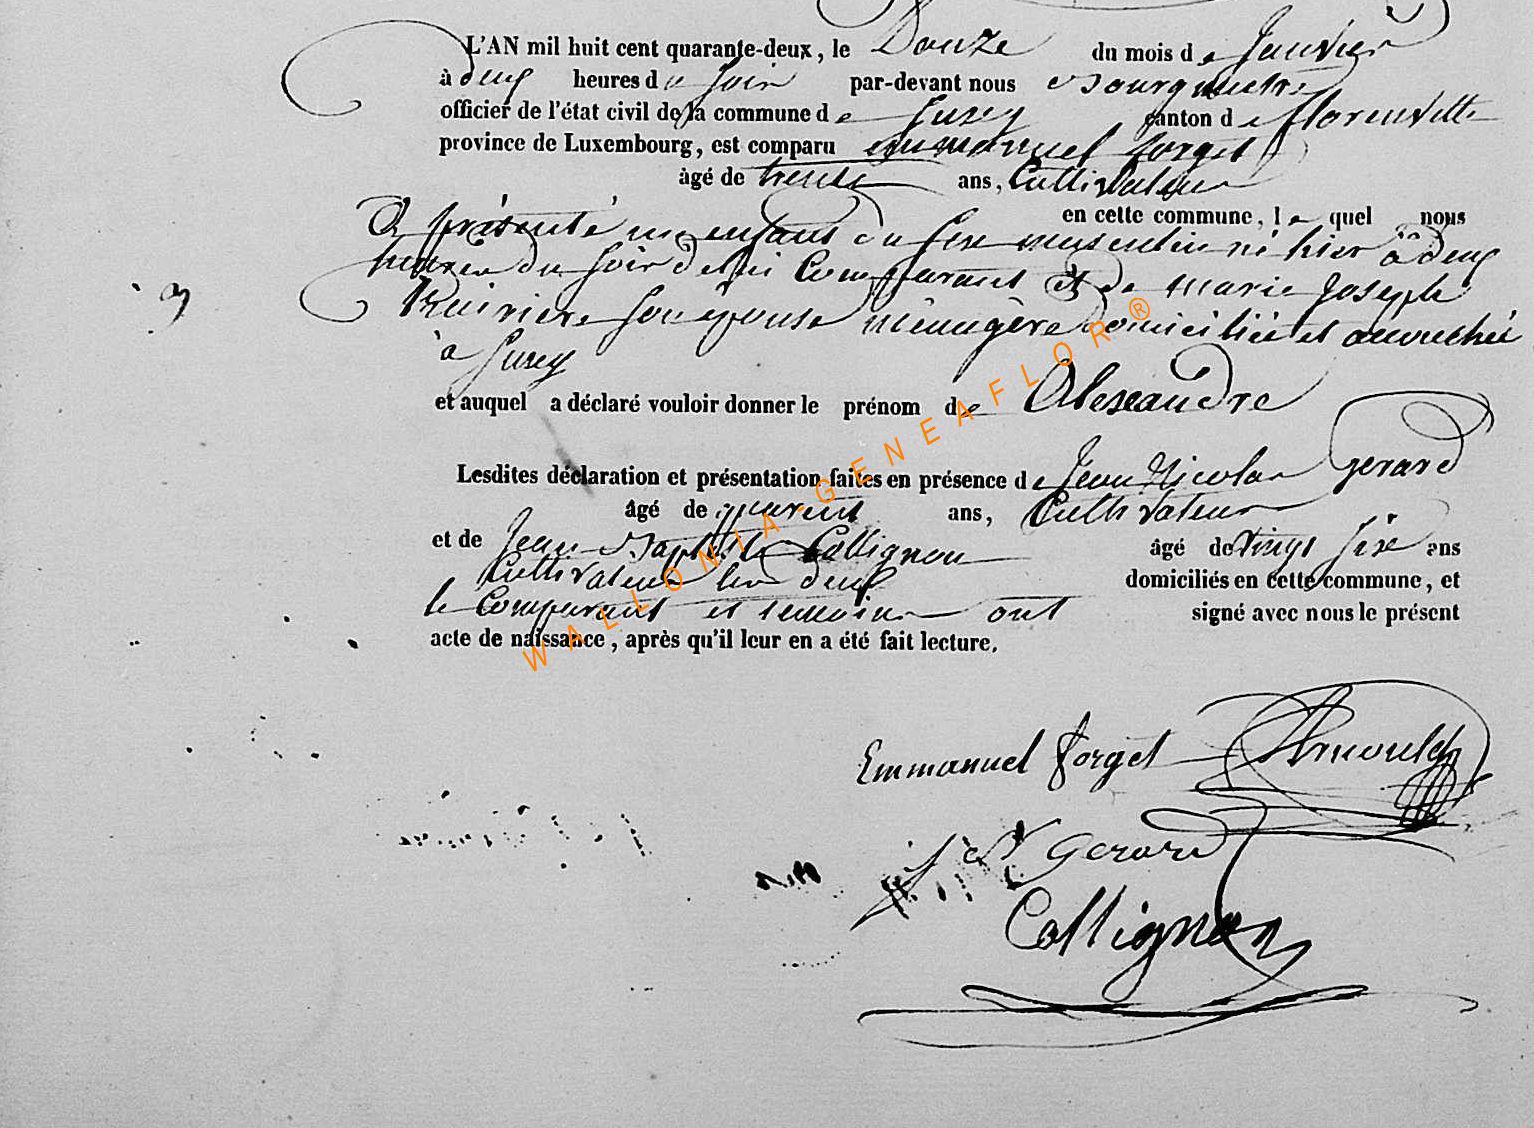 L'AN mil huit cent quarante-deux, le Douze du mois de Janvier
à deux heures du soir par-devant nous Bourgmestre
officier de l'état civil de la commune de Suxy canton de florenville
province de Luxembourg, est comparu emmanuel forget
âgé de trente ans, Cultivateur
en cette commune, le quel nous
a présenté un enfant du sexe masculin né hier à deux
heures du soir de lui Comparant et de marie Joseph
son épouse ménagère domiciliée et accouchée
à Suxy
et auquel a déclaré vouloir donner le prénom de Alexandre
Lesdites déclaration et présentation faites en présence de Jean Nicolas Gerard
âgé de quarente ans, Cultivateur
et de Jean Baptiste Collignon âgé de vingt six ans
Cultivateur les deux domiciliés en cette commune, et
le Comparant et temoins ont signé avec nous le présent
acte de naissance, après qu'il leur en a été fait lecture.
Emmanuel forget Arnould
J N Gerard
Collignon
WALLONIA-GENEAFLOR®